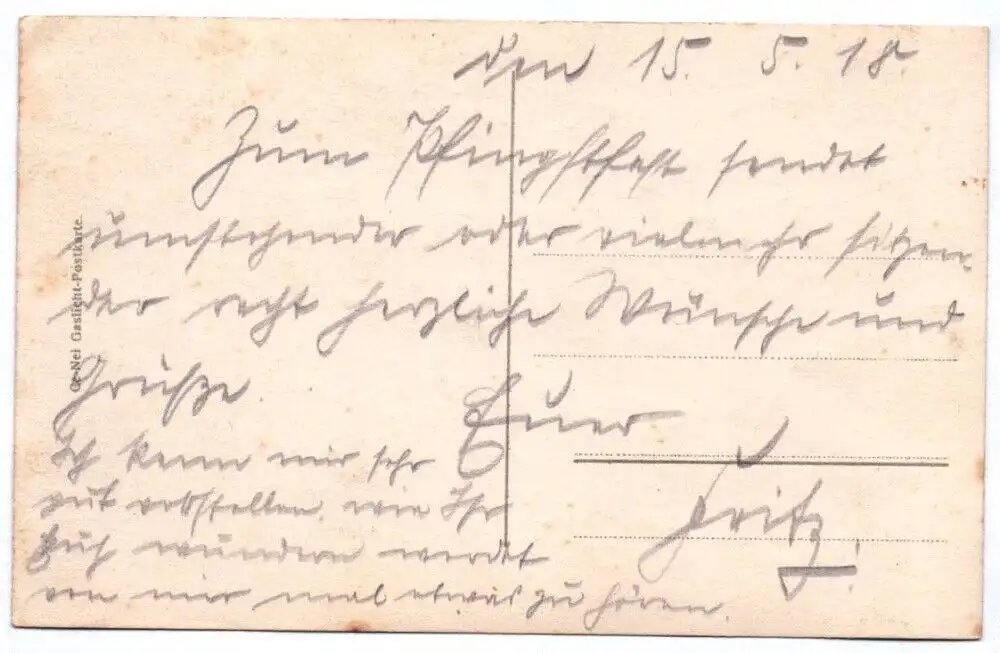 den 15. 5. 18.
Zum Pfingstfest sendet
umstehender oder vielmehr sitzen-
der recht herzliche Wünsche und
Grüße.
Euer
Fritz.
Ich kann mir sehr
gut vorstellen, wie Ihr
Euch wundern werdet
von mir mal etwas zu hören.
Ge-Nei Gaslicht-Postkarte.